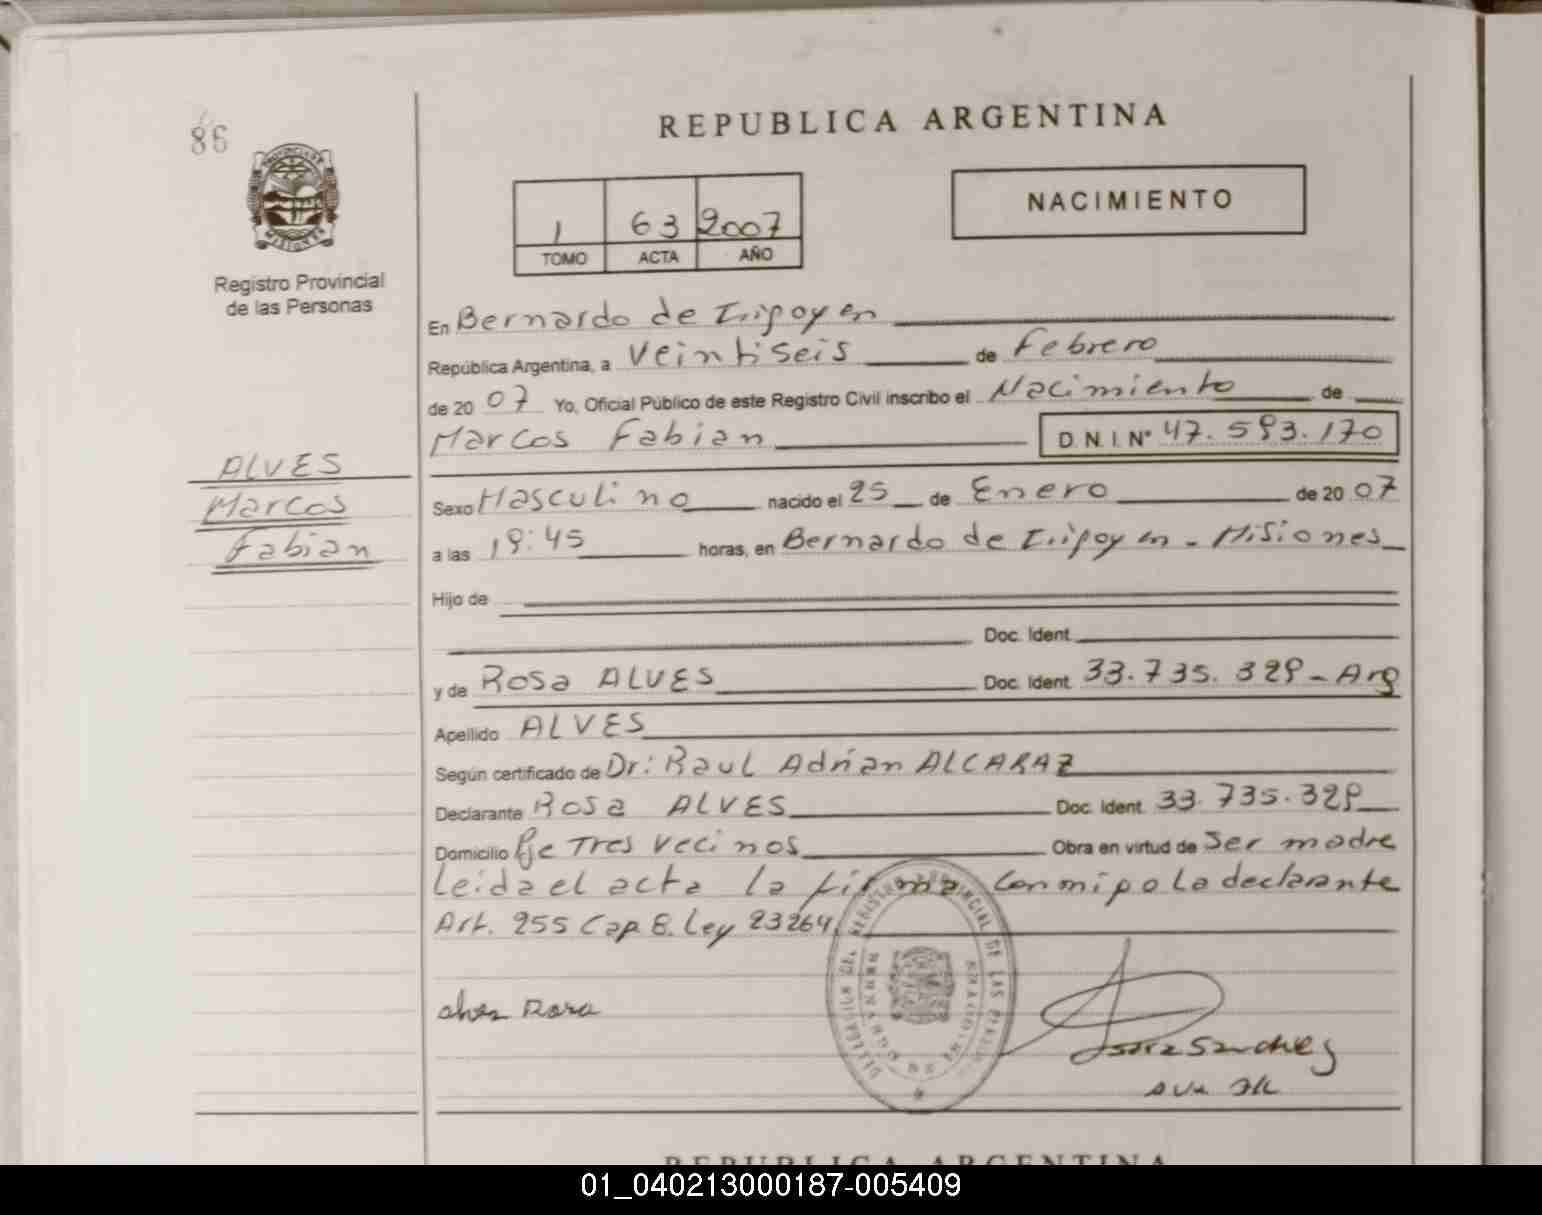 86
REPUBLICA ARGENTINA
NACIMIENTO
1 63 2007
TOMO ACTA AÑO
PROVINCIA DE
MISIONES
Registro Provincial
de las Personas
En Bernardo de Irigoyen
República Argentina, a Veintiseis de Febrero
de 20 07 Yo, Oficial Público de este Registro Civil inscribo el Nacimiento de
Marcos Fabian D. N. I. Nº 47.593.170
ALVES
Marcos
Fabian
Sexo Masculino nacido el 25 de Enero de 20 07
a las 19:45 horas, en Bernardo de Irigoyen - Misiones
Hijo de
Doc. Ident.
y de Rosa ALVES Doc. Ident. 33.735.329 - Arg
Apellido ALVES
Según certificado de Dr: Raul Adrian ALCARAZ
Declarante Rosa ALVES Doc. Ident. 33.735.329
Domicilio Pje Tres Vecinos Obra en virtud de Ser madre
Leida el acta la firma conmigo la declarante
Art. 255 Cap 8. Ley 23264
DELEGACION DEL REGISTRO PROVINCIAL DE LAS
alves Rosa
Sanchez
REPUBLICA ARGENTINA
01_040213000187-005409